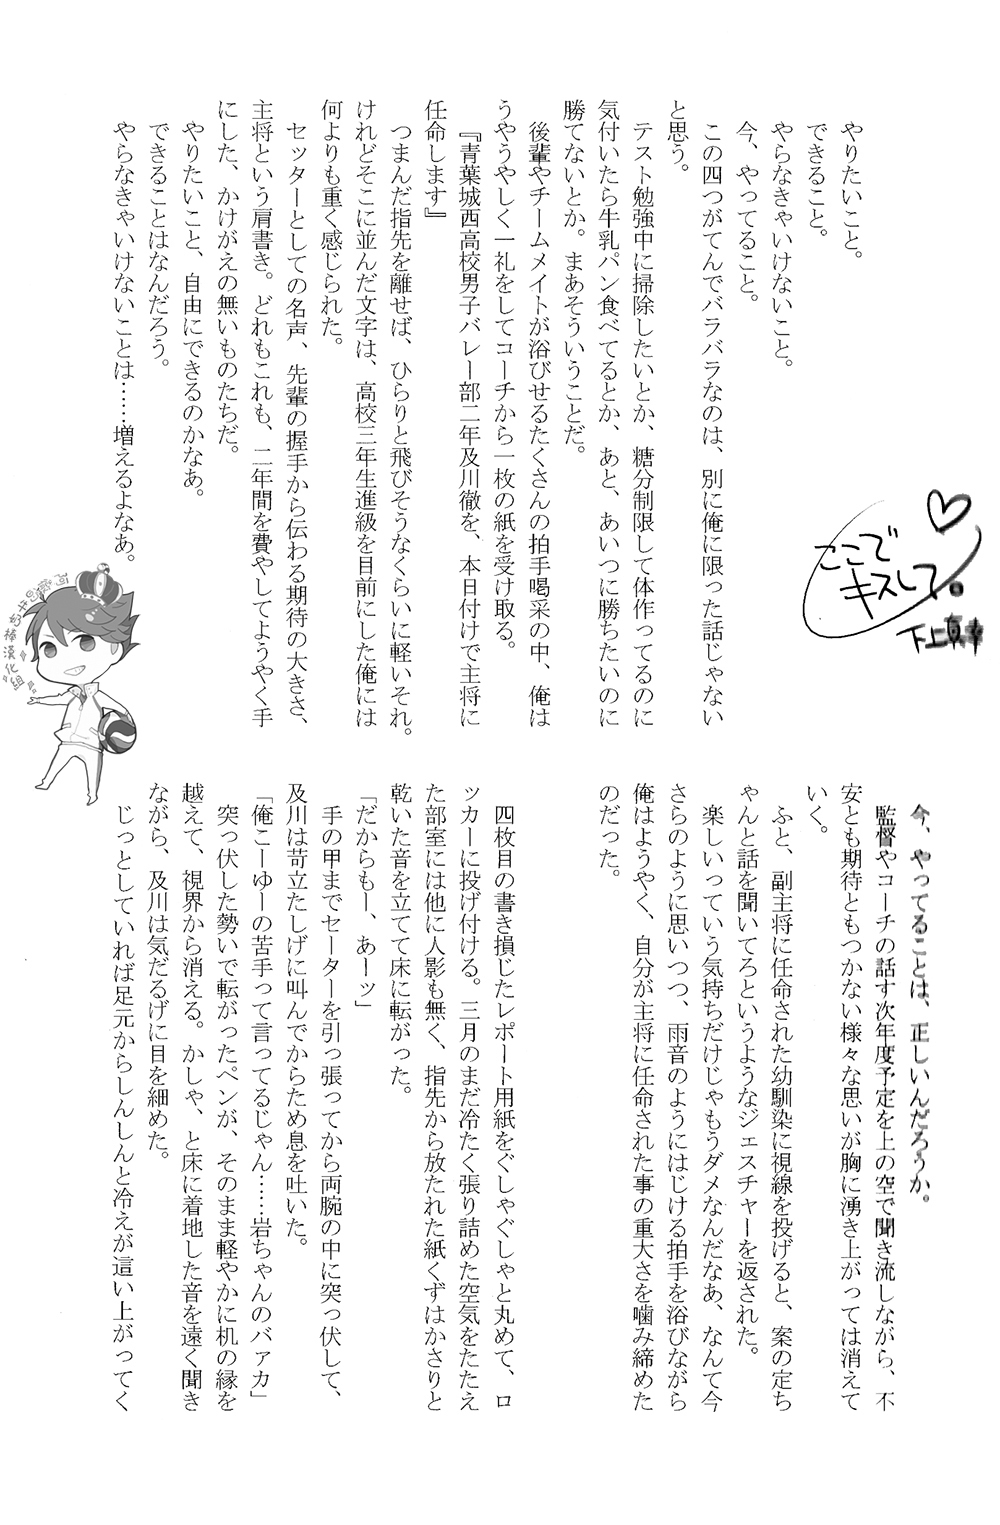 ここで
キスして。
下上真幸
やりたいこと。
できること。
やらなきゃいけないこと。
今、やってること。
この四つがてんでバラバラなのは、別に俺に限った話じゃない
と思う。
テスト勉強中に掃除したいとか、糖分制限して体作ってるのに
気付いたら牛乳パン食べてるとか、あと、あいつに勝ちたいのに
勝てないとか。まあそういうことだ。
後輩やチームメイトが浴びせるたくさんの拍手喝采の中、俺は
うやうやしく一礼をしてコーチから一枚の紙を受け取る。
『青葉城西高校男子バレー部二年及川徹を、本日付けで主将に
任命します』
つまんだ指先を離せば、ひらりと飛びそうなくらいに軽いそれ。
けれどそこに並んだ文字は、高校三年生進級を目前にした俺には
何よりも重く感じられた。
セッターとしての名声、先輩の握手から伝わる期待の大きさ、
主将という肩書き。どれもこれも、二年間を費やしてようやく手
にした、かけがえの無いものたちだ。
やりたいこと、自由にできるのかなあ。
できることはなんだろう。
やらなきゃいけないことは……増えるよなあ。
今、やってることは、正しいんだろうか。
監督やコーチの話す次年度予定を上の空で聞き流しながら、不
安とも期待ともつかない様々な思いが胸に湧き上がっては消えて
いく。
ふと、副主将に任命された幼馴染に視線を投げると、案の定ち
ゃんと話を聞いてろというようなジェスチャーを返された。
楽しいっていう気持ちだけじゃもうダメなんだなあ、なんて今
さらのように思いつつ、雨音のようにはじける拍手を浴びながら
俺はようやく、自分が主将に任命された事の重大さを噛み締めた
のだった。
四枚目の書き損じたレポート用紙をぐしゃぐしゃと丸めて、ロ
ッカーに投げ付ける。三月のまだ冷たく張り詰めた空気をたたえ
た部室には他に人影も無く、指先から放たれた紙くずはかさりと
乾いた音を立てて床に転がった。
「だからもー、あーッ」
手の甲までセーターを引っ張ってから両腕の中に突っ伏して、
及川は苛立たしげに叫んでからため息を吐いた。
「俺こーゆーの苦手って言ってるじゃん……岩ちゃんのバァカ」
突っ伏した勢いで転がったペンが、そのまま軽やかに机の縁を
越えて、視界から消える。かしゃ、と床に着地した音を遠く聞き
ながら、及川は気だるげに目を細めた。
じっとしていれば足元からしんしんと冷えが這い上がってく